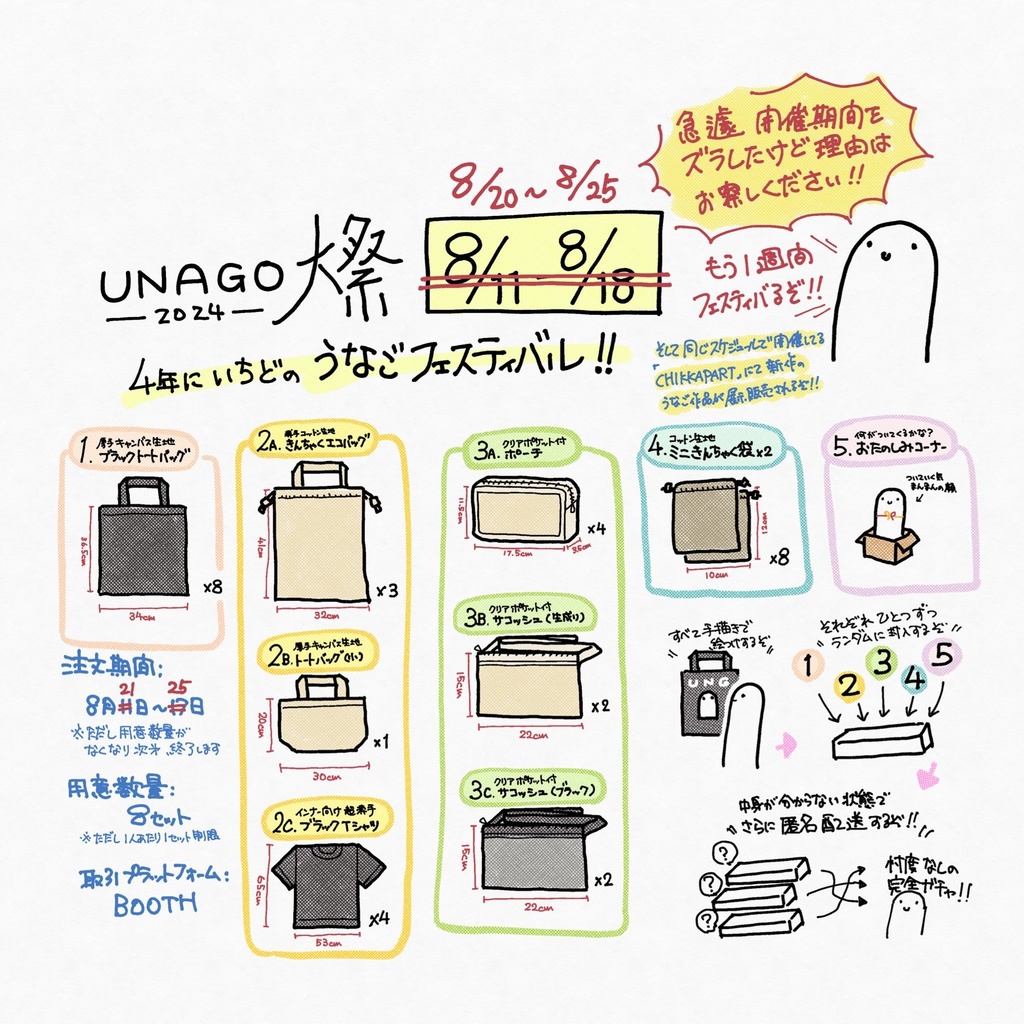 急遽 開催期間を
ズラしたけど理由は
お察しください!!
8/20〜8/25
8/11-8/18
UNAGO燦
2024
もう1週間
フェスティバるぞ!!
4年にいちどの うなごフェスティバル!!
そして同じスケジュールで開催してる
「CHIKKAPART」にて新作の
うなご作品が展示販売されるぞ!!
1. 厚手キャンバス生地
ブラックトートバッグ
36.5cm
34cm
×8
2A. 厚手コットン生地
きんちゃくエコバッグ
41cm
32cm
×3
2B. 厚手キャンバス生地
トートバッグ(小)
20cm
30cm
×1
2C. インナー向け 超薄手
ブラックTシャツ
65cm
53cm
×4
3A. クリアポケット付
ポーチ
11.5cm
17.5cm
3.5cm
×4
3B. クリアポケット付
サコッシュ(生成り)
15cm
22cm
×2
3C. クリアポケット付
サコッシュ(ブラック)
15cm
22cm
×2
4. コットン生地
ミニきんちゃく袋×2
12cm
10cm
×8
5. 何がついてくるかな?
おたのしみコーナー
ついていく気
まんまんの顔
注文期間:
21 25
8月11日〜17日
※ただし用意数量が
なくなり次第、終了します
用意数量:
8セット
※ただし1人あたり1セット制限
取引プラットフォーム:
BOOTH
すべて手描きで
絵つけするぞ
UNG
それぞれひとつずつ
ランダムに封入するぞ
1
2
3
4
5
中身が分からない状態で
さらに匿名配送するぞ!!
?
?
?
忖度なしの
完全ガチャ!!